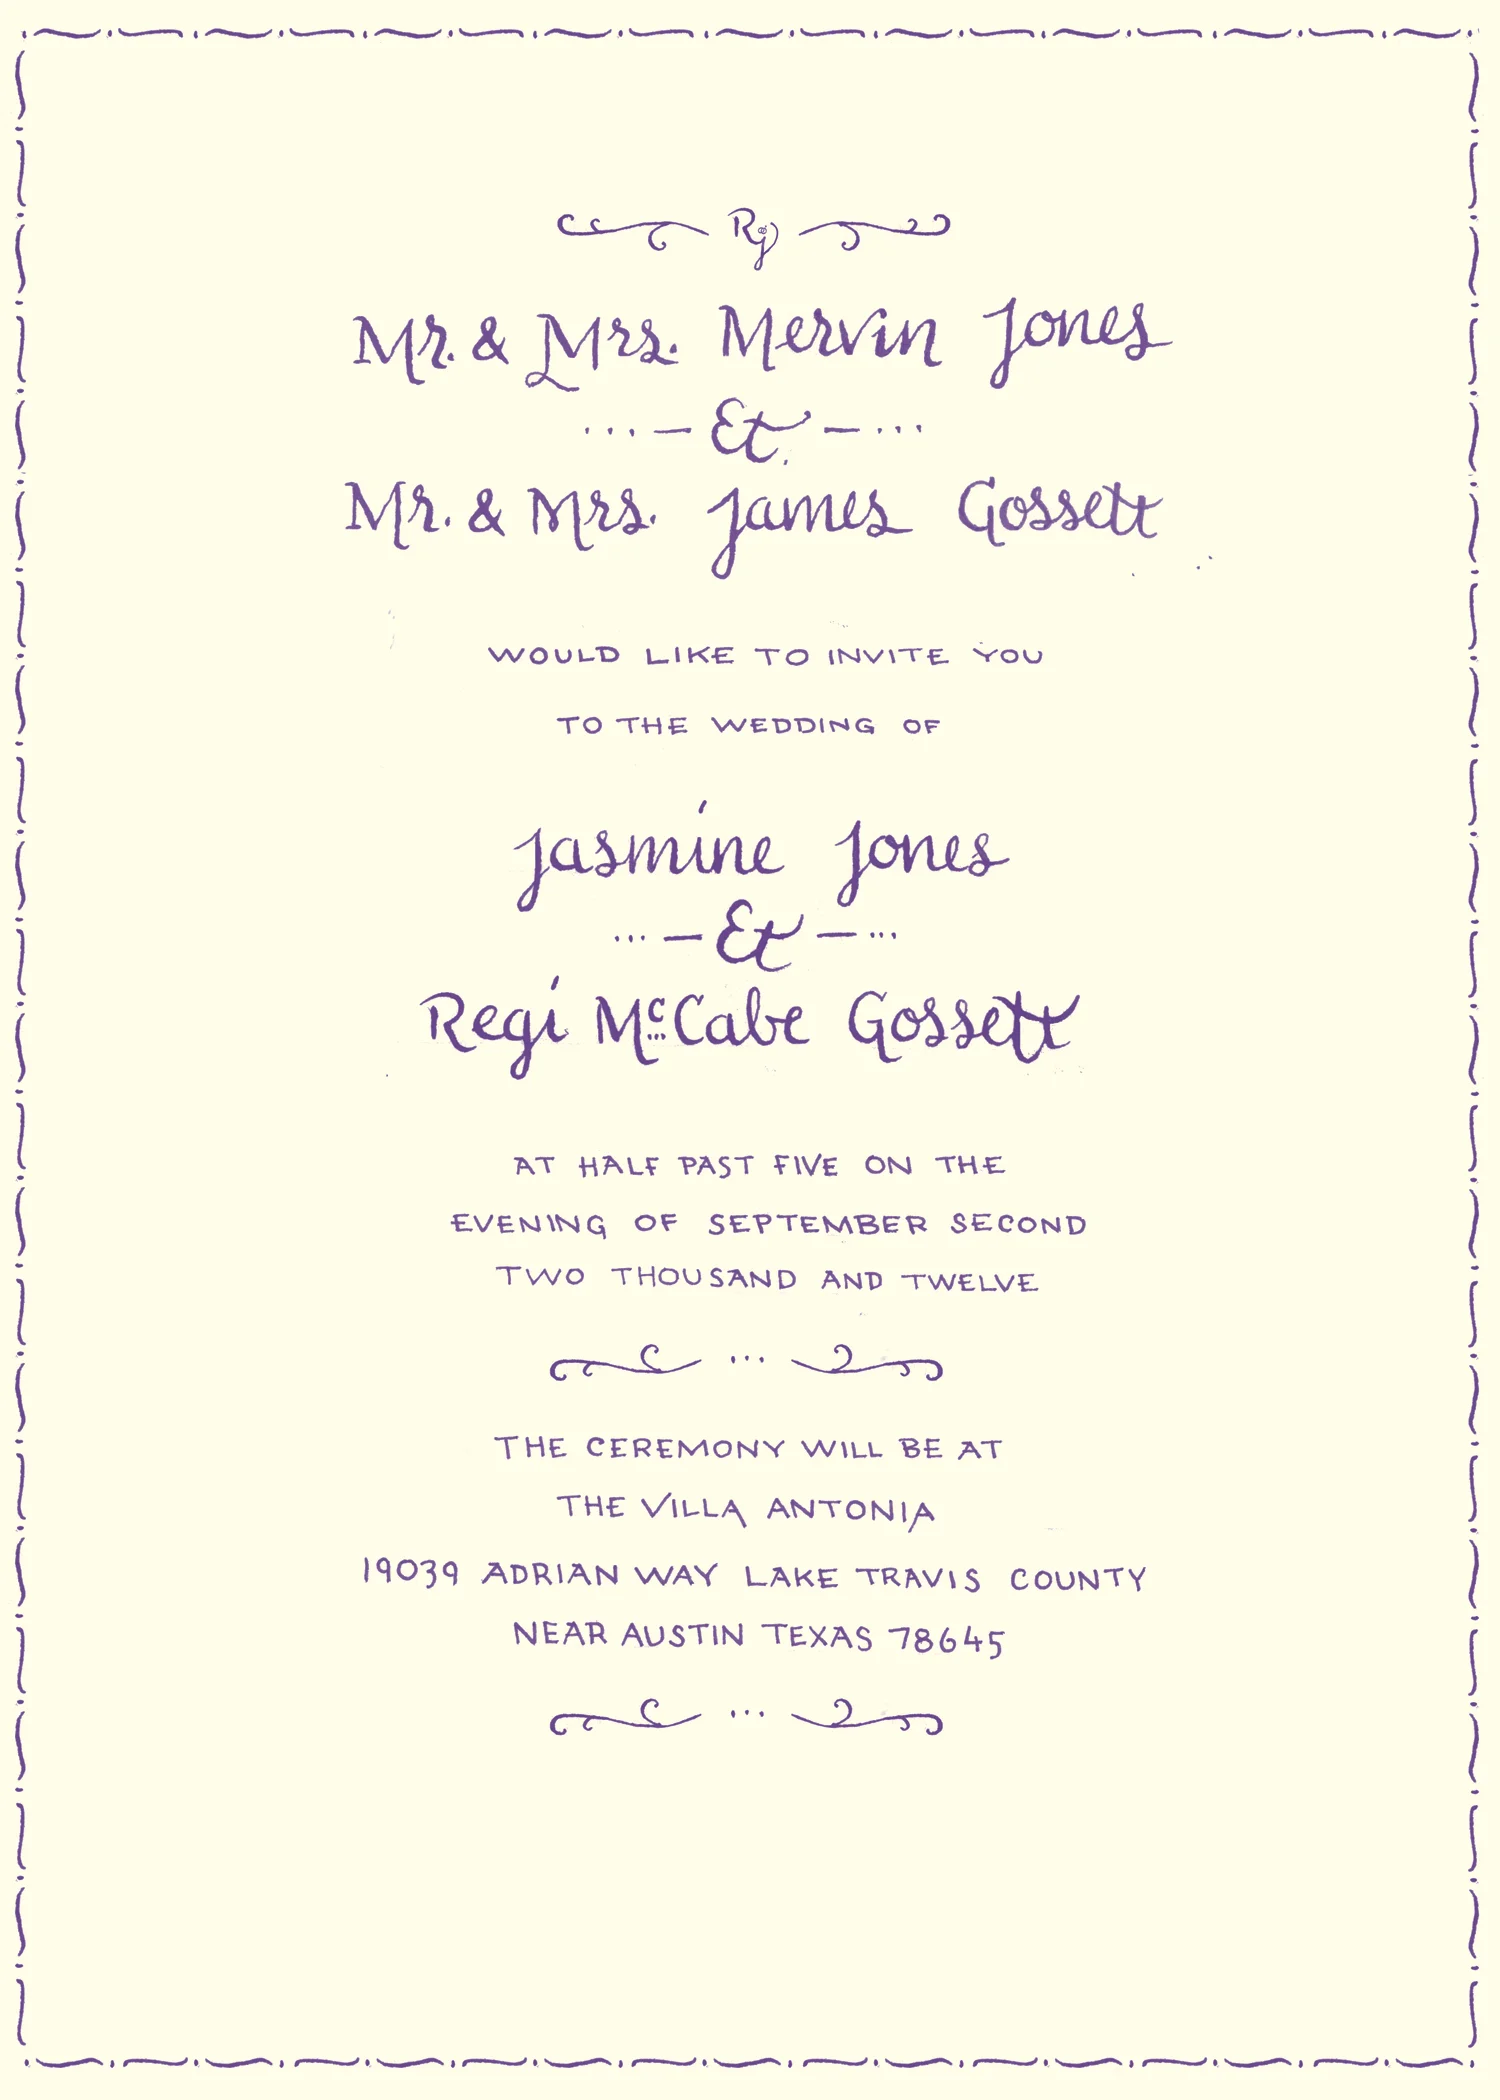 Rj
Mr. & Mrs. Mervin Jones
... — Et — ...
Mr. & Mrs. James Gossett
WOULD LIKE TO INVITE YOU
TO THE WEDDING OF
Jasmine Jones
... — Et — ...
Regi McCabe Gossett
AT HALF PAST FIVE ON THE
EVENING OF SEPTEMBER SECOND
TWO THOUSAND AND TWELVE
...
THE CEREMONY WILL BE AT
THE VILLA ANTONIA
19039 ADRIAN WAY LAKE TRAVIS COUNTY
NEAR AUSTIN TEXAS 78645
...